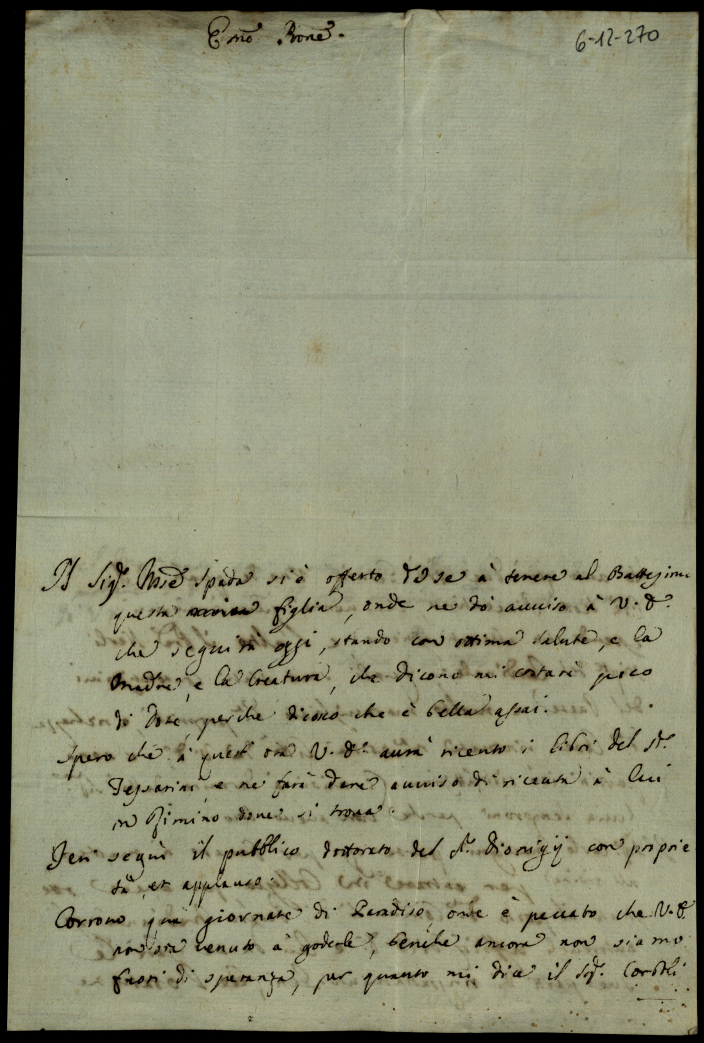 Emō Prone.
6-12-270
Il Sig.r Spada si è offerto da se à tenere al Battesimo
questa figlia, onde ne dò auuiso à V. E.
che seguirà oggi, stando con ottima salute, e la
Madre, e la Creatura, che dicono mi costarà poco
di dote, perche dicono che è bella assai.
Spero che à quest' ora V. E. aurà riceuto i libri del S.r
Tessarini, e ne farà dare auuiso di riceuta à lui
in Rimino doue si troua.
Jeri seguì il pubblico dottorato del S.r Dionigij con proprie
tà, et applauso.
Corrono quà giornate di Paradiso, onde è peccato che V. E.
non sia uenuto à goderle, benche ancora non siamo
fuori di speranza, per quanto mi dice il Sig.r Corsoli